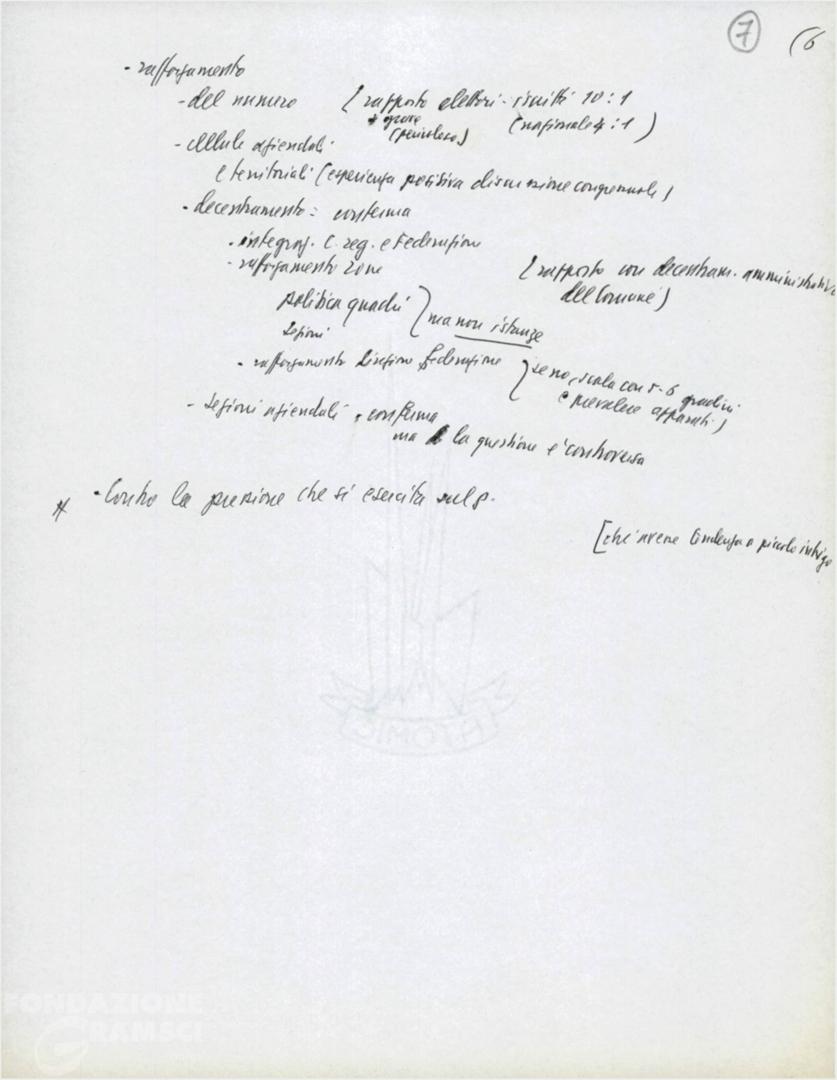 7 (6
- rafforzamento
- del numero [rapporto elettori - iscritti 10 : 1
+ grave (pericoloso) (nazionale 4 : 1)
- cellule aziendali
e territoriali (esperienza positiva discussione congressuale)
- decentramento = conferma
- integraz. C. reg. e Federazione
- rafforzamento zone [rapporto con decentram. amministrativo
del Comune)
politica quadri
sezioni } ma non istanze
- rafforzamento Direzione Federazione } se no, scala con 5-6 gradini
e prevalere apparati)
- sezioni aziendali, conferma
ma la questione è controversa
* - Contro la pressione che si esercita sul p.
[che viene tendenza a piccolo
ATOMIC
FONDAZIONE
GRAMSCI